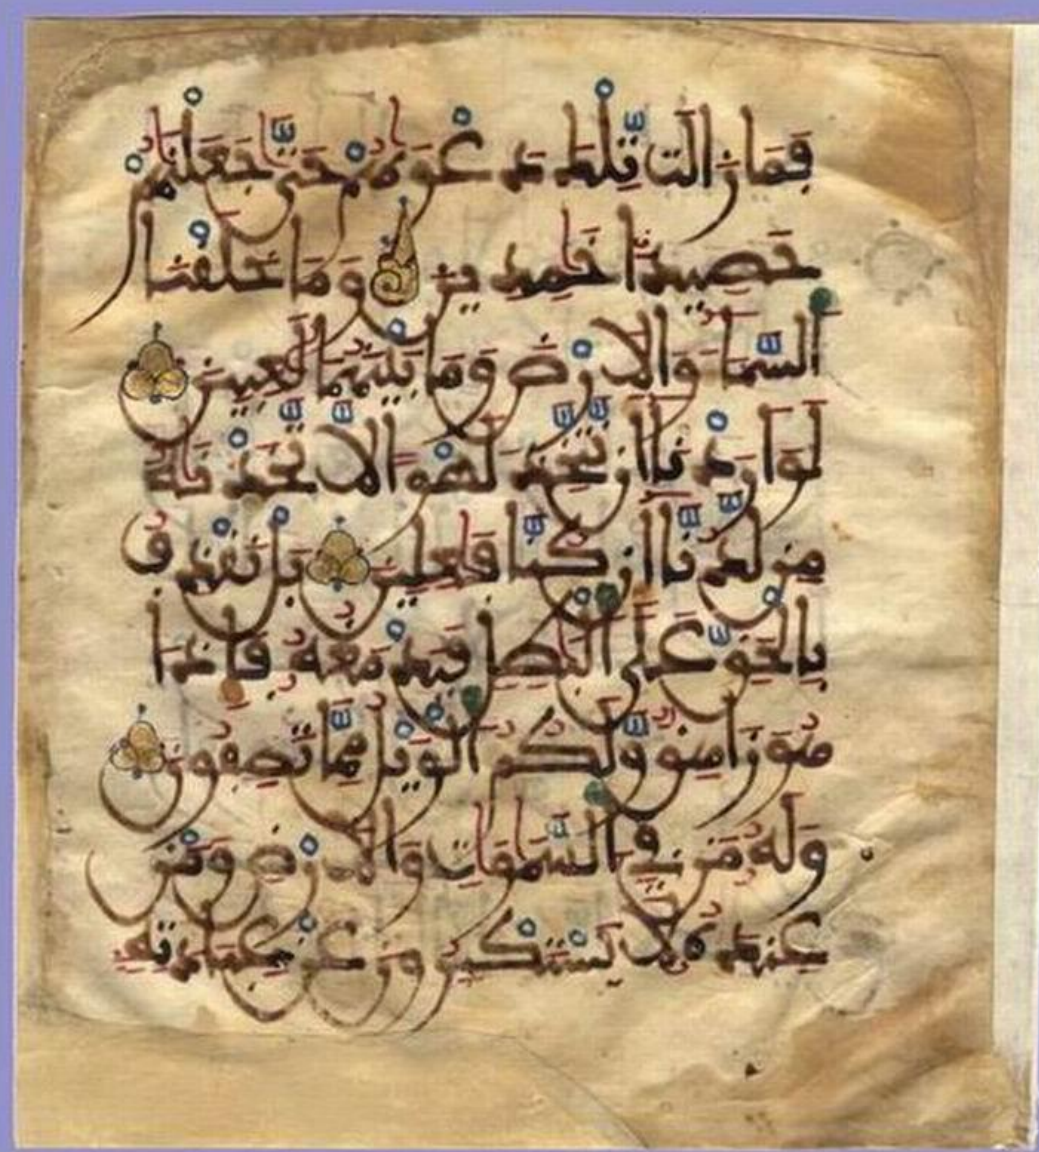 فَمَا زَالَت تِّلْكَ دَعْوَىٰهُمْ حَتَّىٰ جَعَلْنَٰهُمْ
حَصِيدًا خَٰمِدِينَ وَمَا خَلَقْنَا
اَلسَّمَآءَ وَالَارْضَ وَمَا بَيْنَهُمَا لَٰعِبِينَ
لَوَ اَرَدْنَآ أَن نَّتَّخِذَ لَهْوًا لَّاتَّخَذْنَٰهُ
مِن لَّدُنَّآ إِن كُنَّا فَٰعِلِينَ بَلْ نَقْذِفُ
بِالْحَقِّ عَلَى اَلْبَٰطِلِ فَيَدْمَغُهُۥ فَإِذَا
هُوَ زَاهِقٌ وَلَكُمُ اُلْوَيْلُ مِمَّا تَصِفُونَ
وَلَهُۥ مَن فِي اِلسَّمَٰوَٰتِ وَالَارْضِ وَمَنْ
عِندَهُۥ لَا يَسْتَكْبِرُونَ عَنْ عِبَادَتِهِۦ